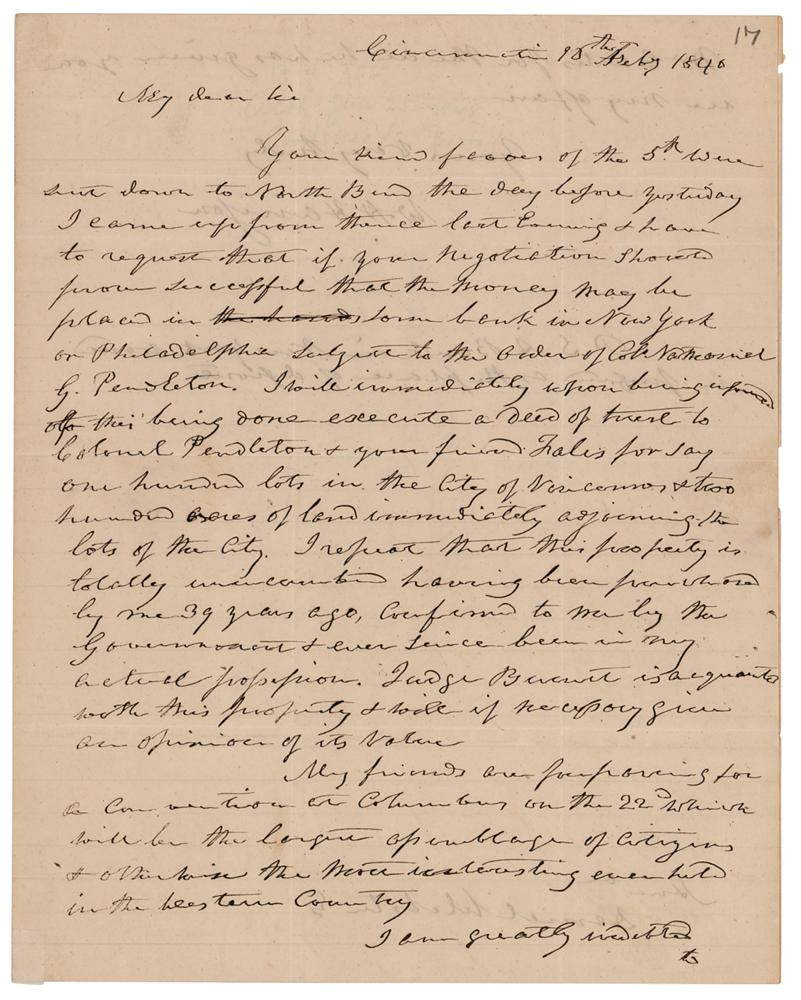 17
Cincinnati 18th Feby 1840
My dear Sir
Your kind favor of the 5th were
sent down to North Bend the day before yesterday
I came up from thence last Evening & have
to request that if your Negotiation should
prove successful that the money may be
placed in the hands some bank in New York
or Philadelphia subject to the order of Col. Nathaniel
G. Pendleton. I will immediately upon being informed
of this being done execute a deed of trust to
Colonel Pendleton & your friend Fales for say
one hundred lots in the City of Vincennes & two
hundred acres of land immediately adjoining the
lots of the City. I repeat that this property is
totally unincumbered having been purchased
by me 39 years ago, confirmed to me by the
Government & ever since been in my
actual possession. Judge Burnet is acquainted
with this property & will if necessary give
an opinion of its value
My friends are preparing for
a Convention at Columbus on the 22d which
will be the largest assemblage of Citizens
& otherwise the most interesting ever held
in the Western Country
I am greatly indebted
to